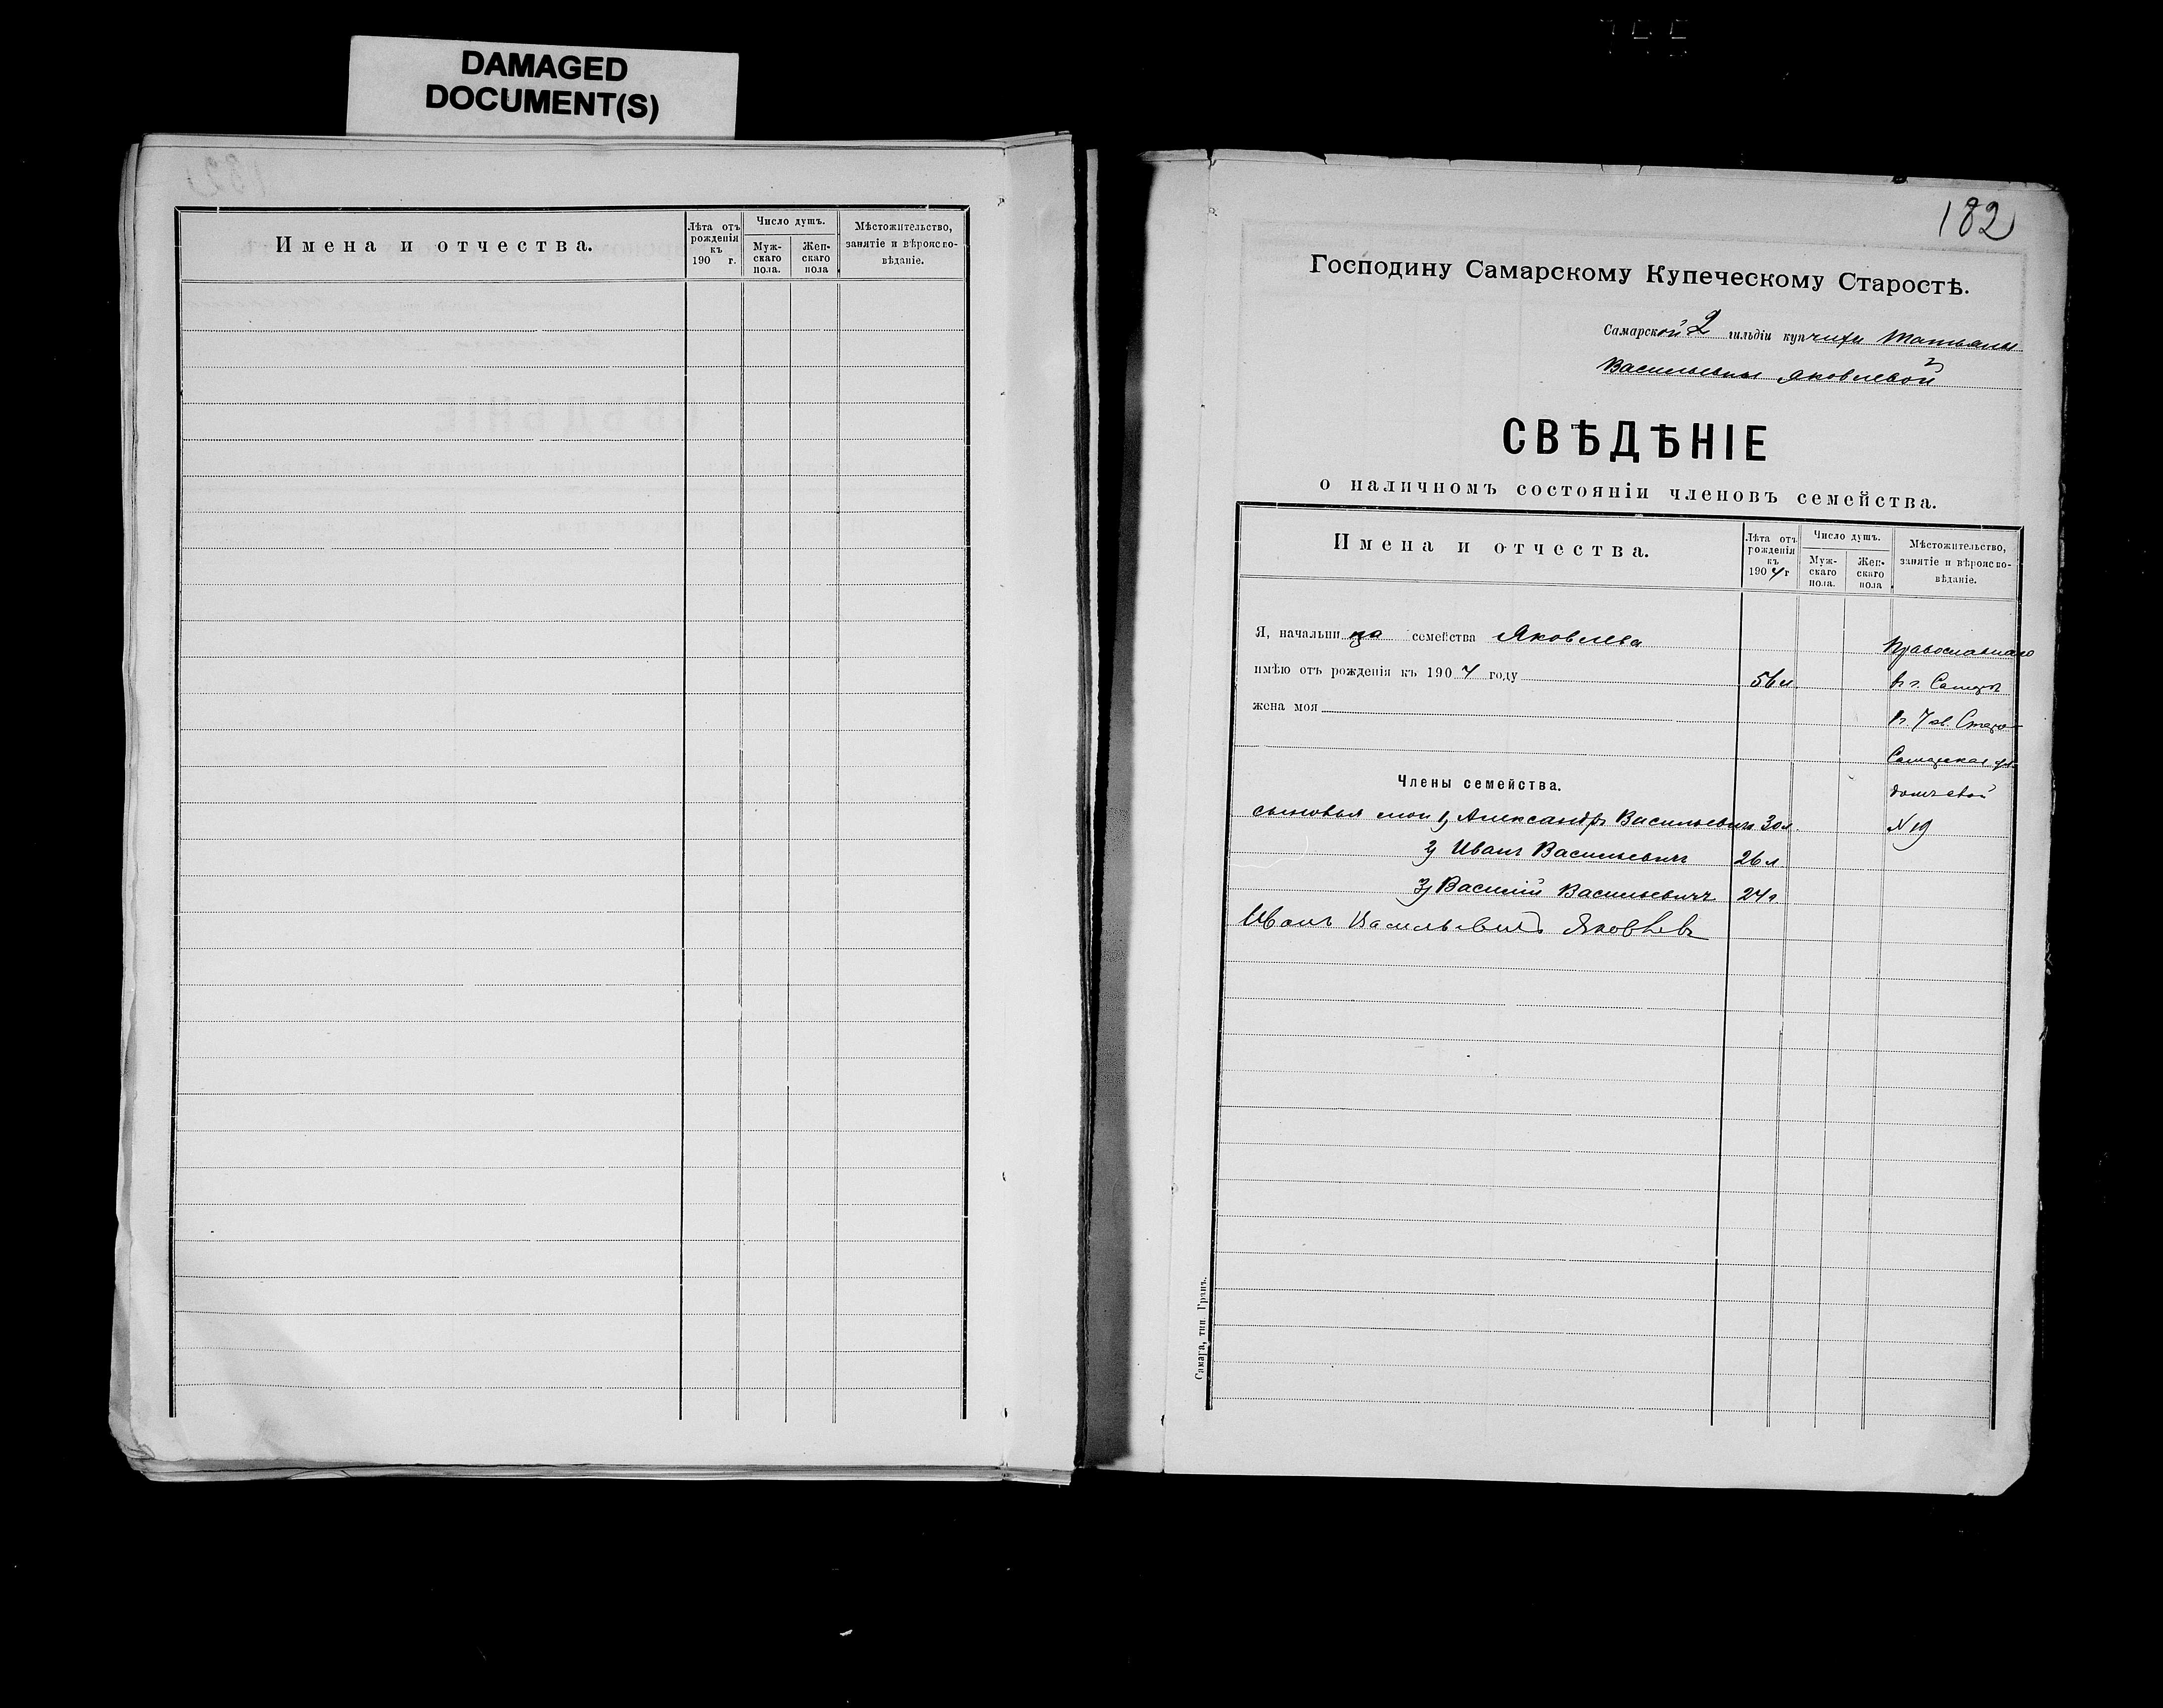 DAMAGED
DOCUMENT(S)
Имена и отчества.
Лѣта отъ рожденія къ 190 г.
Число душъ.
Мужскаго пола.
Женскаго пола
Мѣстожительство, занятіе и вѣроисповѣданіе.
182
Господину Самарскому Купеческому Старостѣ.
Самарской 2 гильдіи купчихи Татьяны
Васильевны Яковлевой
СВѢДѢНІЕ
о наличномъ состояніи членовъ семейства.
Имена и отчества.
Лѣта отъ рожденія къ 1904 г
Число душъ.
Мужскаго пола.
Женскаго пола
Мѣстожительство, занятіе и вѣроисповѣданіе.
Я, начальница семейства Яковлева
Православнаго
имѣю отъ рожденія къ 1904 году 56 л
въ г. Самарѣ
жена моя
въ 7 кв. Старо-
Самарская ул.
Члены семейства.
домъ свой
сыновья мои 1) Александръ Васильевичъ 30 л.
№ 19
2) Иванъ Васильевичъ 26 л
3) Василій Васильевичъ 24 г.
Иванъ Васильевичъ Яковлевъ
Самара, тип. Гранъ.